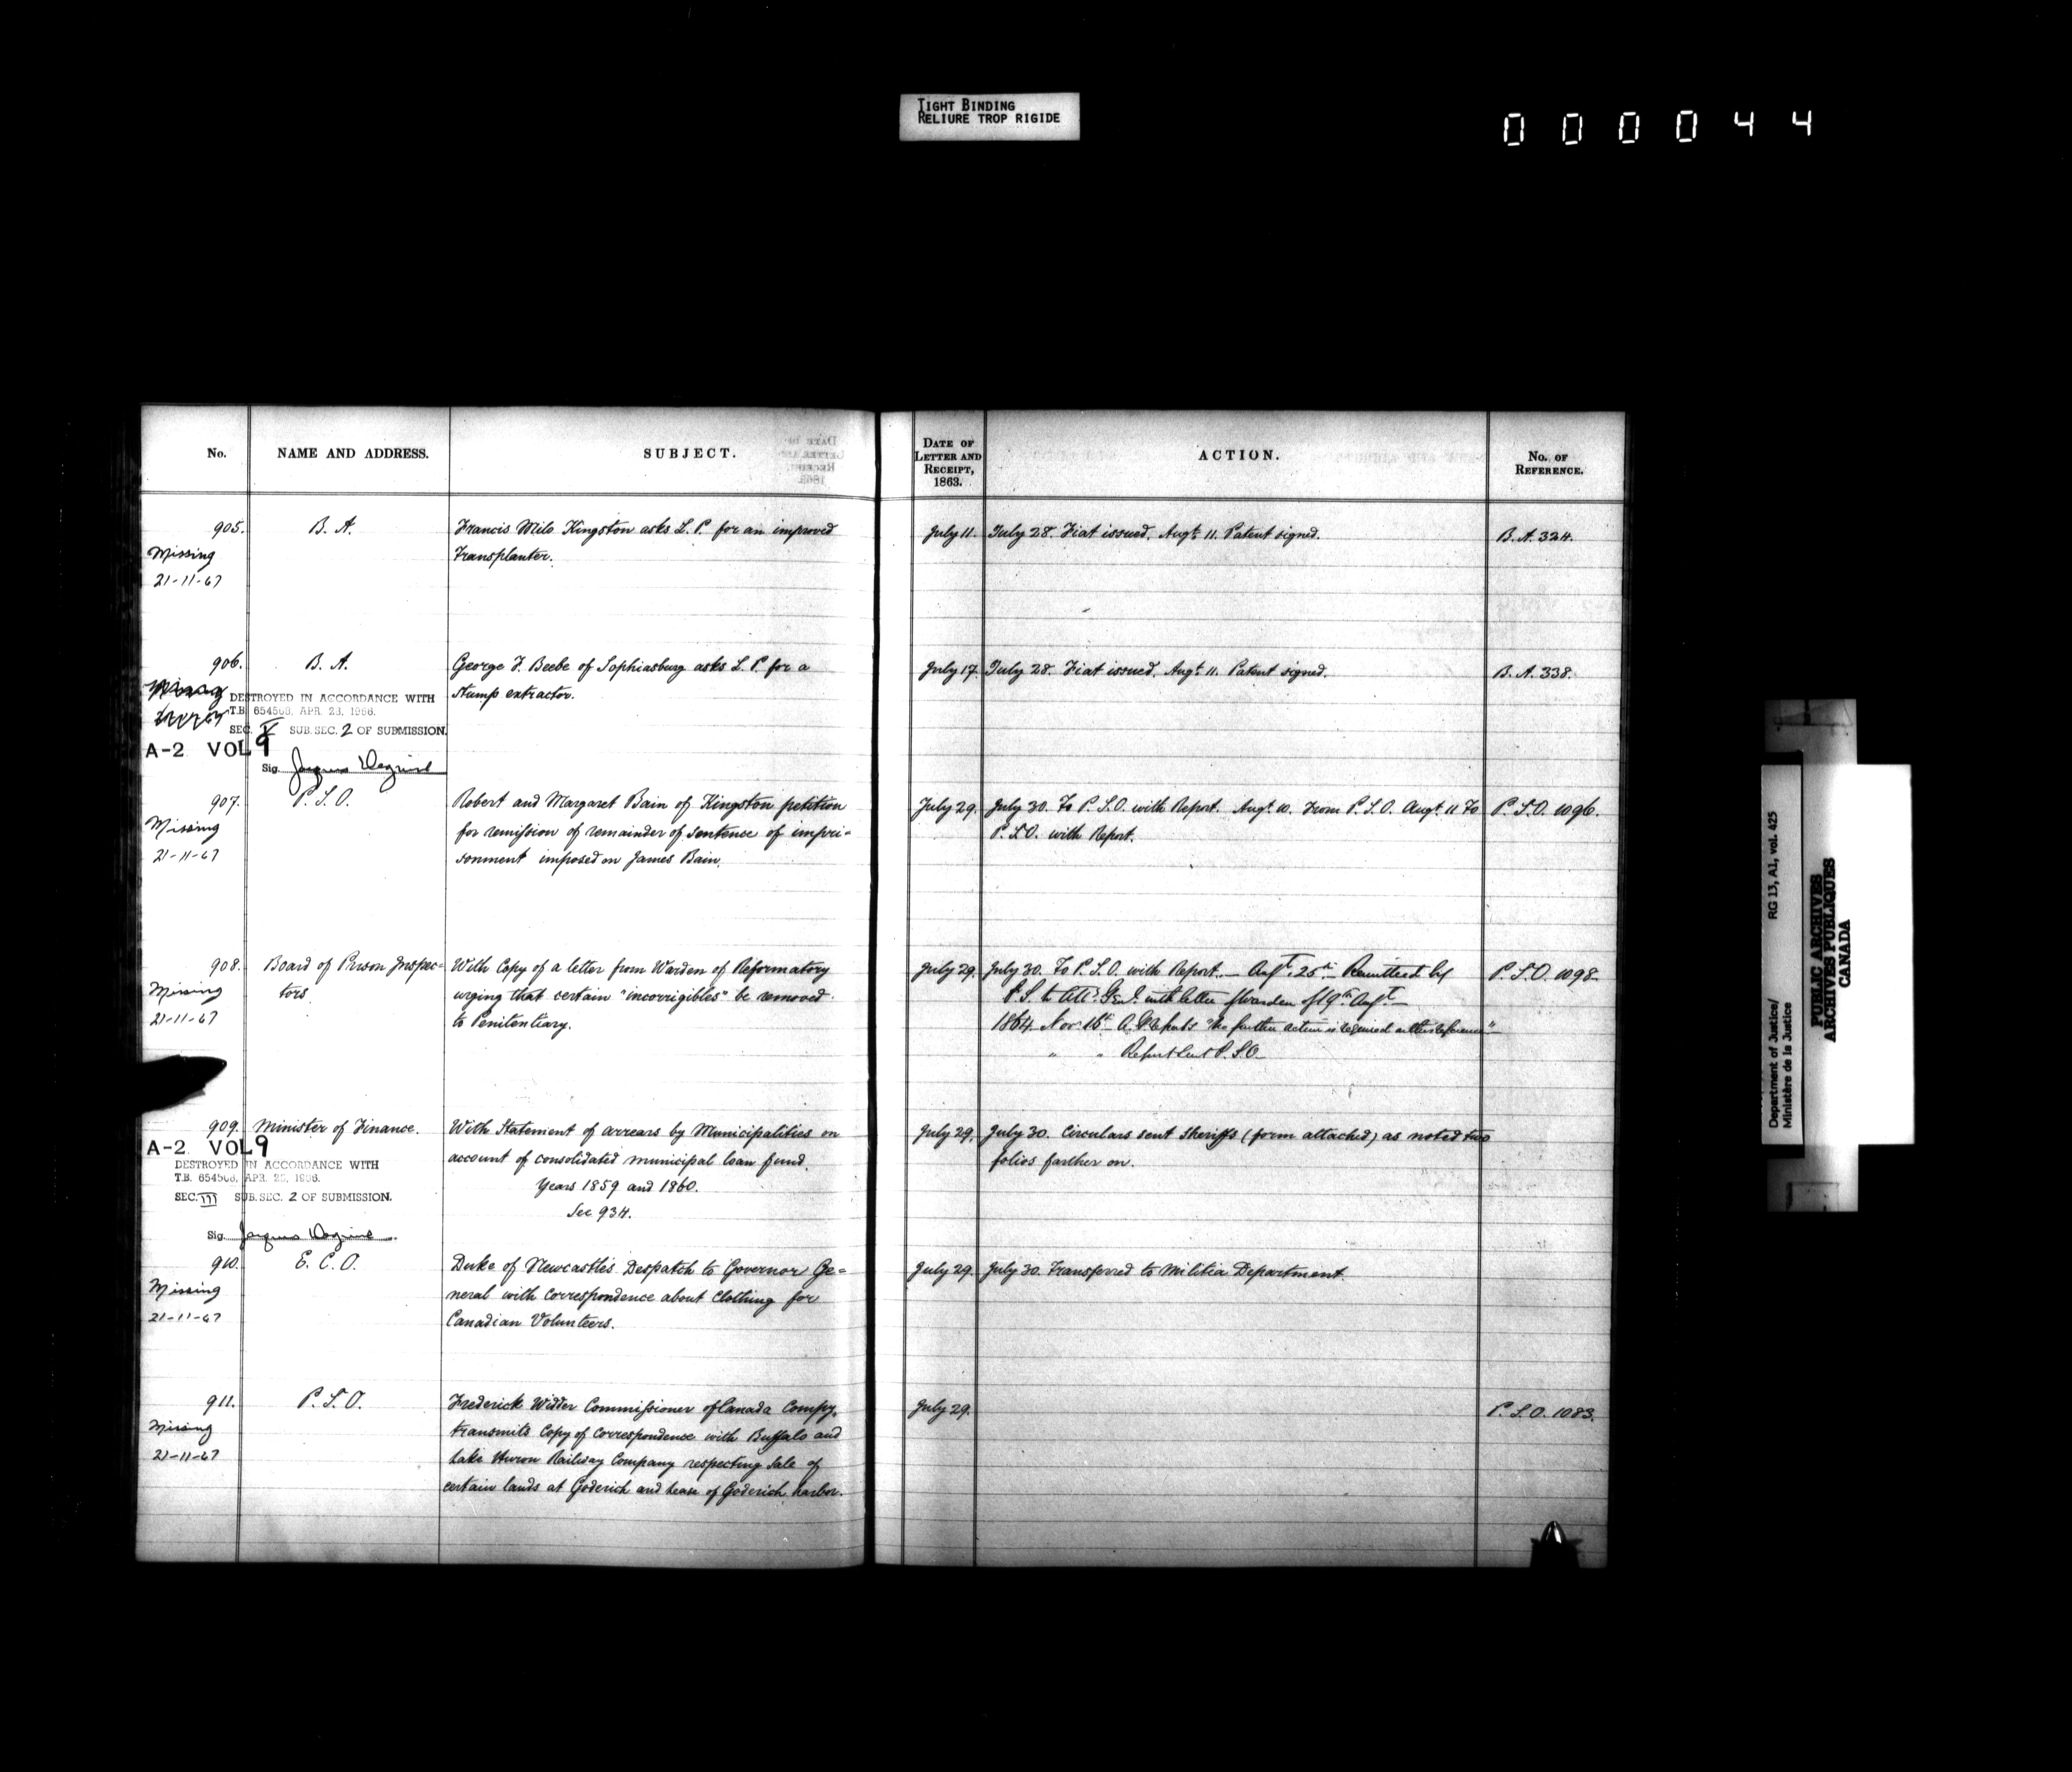 TIGHT BINDING
RELIURE TROP RIGIDE
000044
No.
NAME AND ADDRESS.
SUBJECT.
DATE OF
LETTER AND
RECEIPT,
1863.
ACTION.
No. OF
REFERENCE.
905. B. A. Francis Milo Kingston asks L. P. for an improved
Transplanter.
Missing
21-11-67
July 11. July 28. Fiat issued. Augt. 11. Patent signed. B. A. 324.
906. B. A. George F. Beebe of Sophiasburg asks L. P. for a
Stump extractor.
Missing
DESTROYED IN ACCORDANCE WITH
T.B. 654508, APR. 23, 1966.
SEC. V SUB. SEC. 2 OF SUBMISSION.
A-2 VOL 9
Sig.
July 17. July 28. Fiat issued. Augt. 11. Patent signed. B. A. 338.
907. P. S. O. Robert and Margaret Bain of Kingston petition
for remission of remainder of sentence of impri=
sonment imposed on James Bain.
Missing
21-11-67
July 29. July 30. To P. S. O. with Report. Augt. 10. From P. S. O. Augt. 11 To P. S. O. 1096.
P. S. O. with Report.
908. Board of Prison Inspec= With Copy of a letter from Warden of Reformatory
tors urging that certain "incorrigibles" be removed
to Penitentiary.
Missing
21-11-67
July 29. July 30. To P. S. O. with Report. — Augt. 25th Remitted by P. S. O. 1098.
P. S. to Att'y Gen'l. with letter of Warden of 19th Augt —
1864 Nov. 16th A. G. Reports "No further action is required on this reference"
" " Report sent P. S. O.
909. Minister of Finance. With Statement of arrears by Municipalities on
account of consolidated municipal loan fund.
Years 1859 and 1860.
See 934.
A-2 VOL 9
DESTROYED IN ACCORDANCE WITH
T.B. 654508, APR. 23, 1966.
SEC. III SUB. SEC. 2 OF SUBMISSION.
Sig.
July 29. July 30. Circulars sent Sheriffs (form attached) as noted two
folios farther on.
910. E. C. O. Duke of Newcastle's Despatch to Governor Ge=
neral with correspondence about clothing for
Canadian Volunteers.
Missing
21-11-67
July 29. July 30. Transferred to Militia Department.
911. P. S. O. Frederick Widder Commissioner of Canada Compy.
transmits Copy of Correspondence with Buffalo and
Lake Huron Railway Company respecting Sale of
certain lands at Goderich and Lease of Goderich harbor.
Missing
21-11-67
July 29. P. S. O. 1083.
Department of Justice/ RG 13, A1, vol. 425
Ministère de la Justice
PUBLIC ARCHIVES
ARCHIVES PUBLIQUES
CANADA